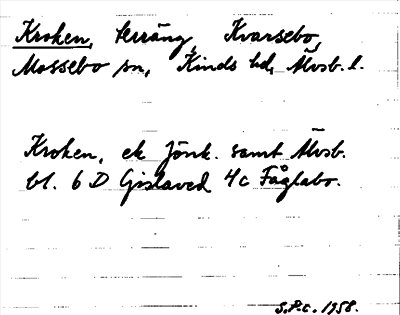 Kroken, terräng, Kvarsebo,
Mossebo sn, Kinds hd, Älvsb. l.
Kroken, ek Jönk. samt Älvsb.
bl. 6 D Gislaved 4c Fåglabo.
S.P.C. 1958.